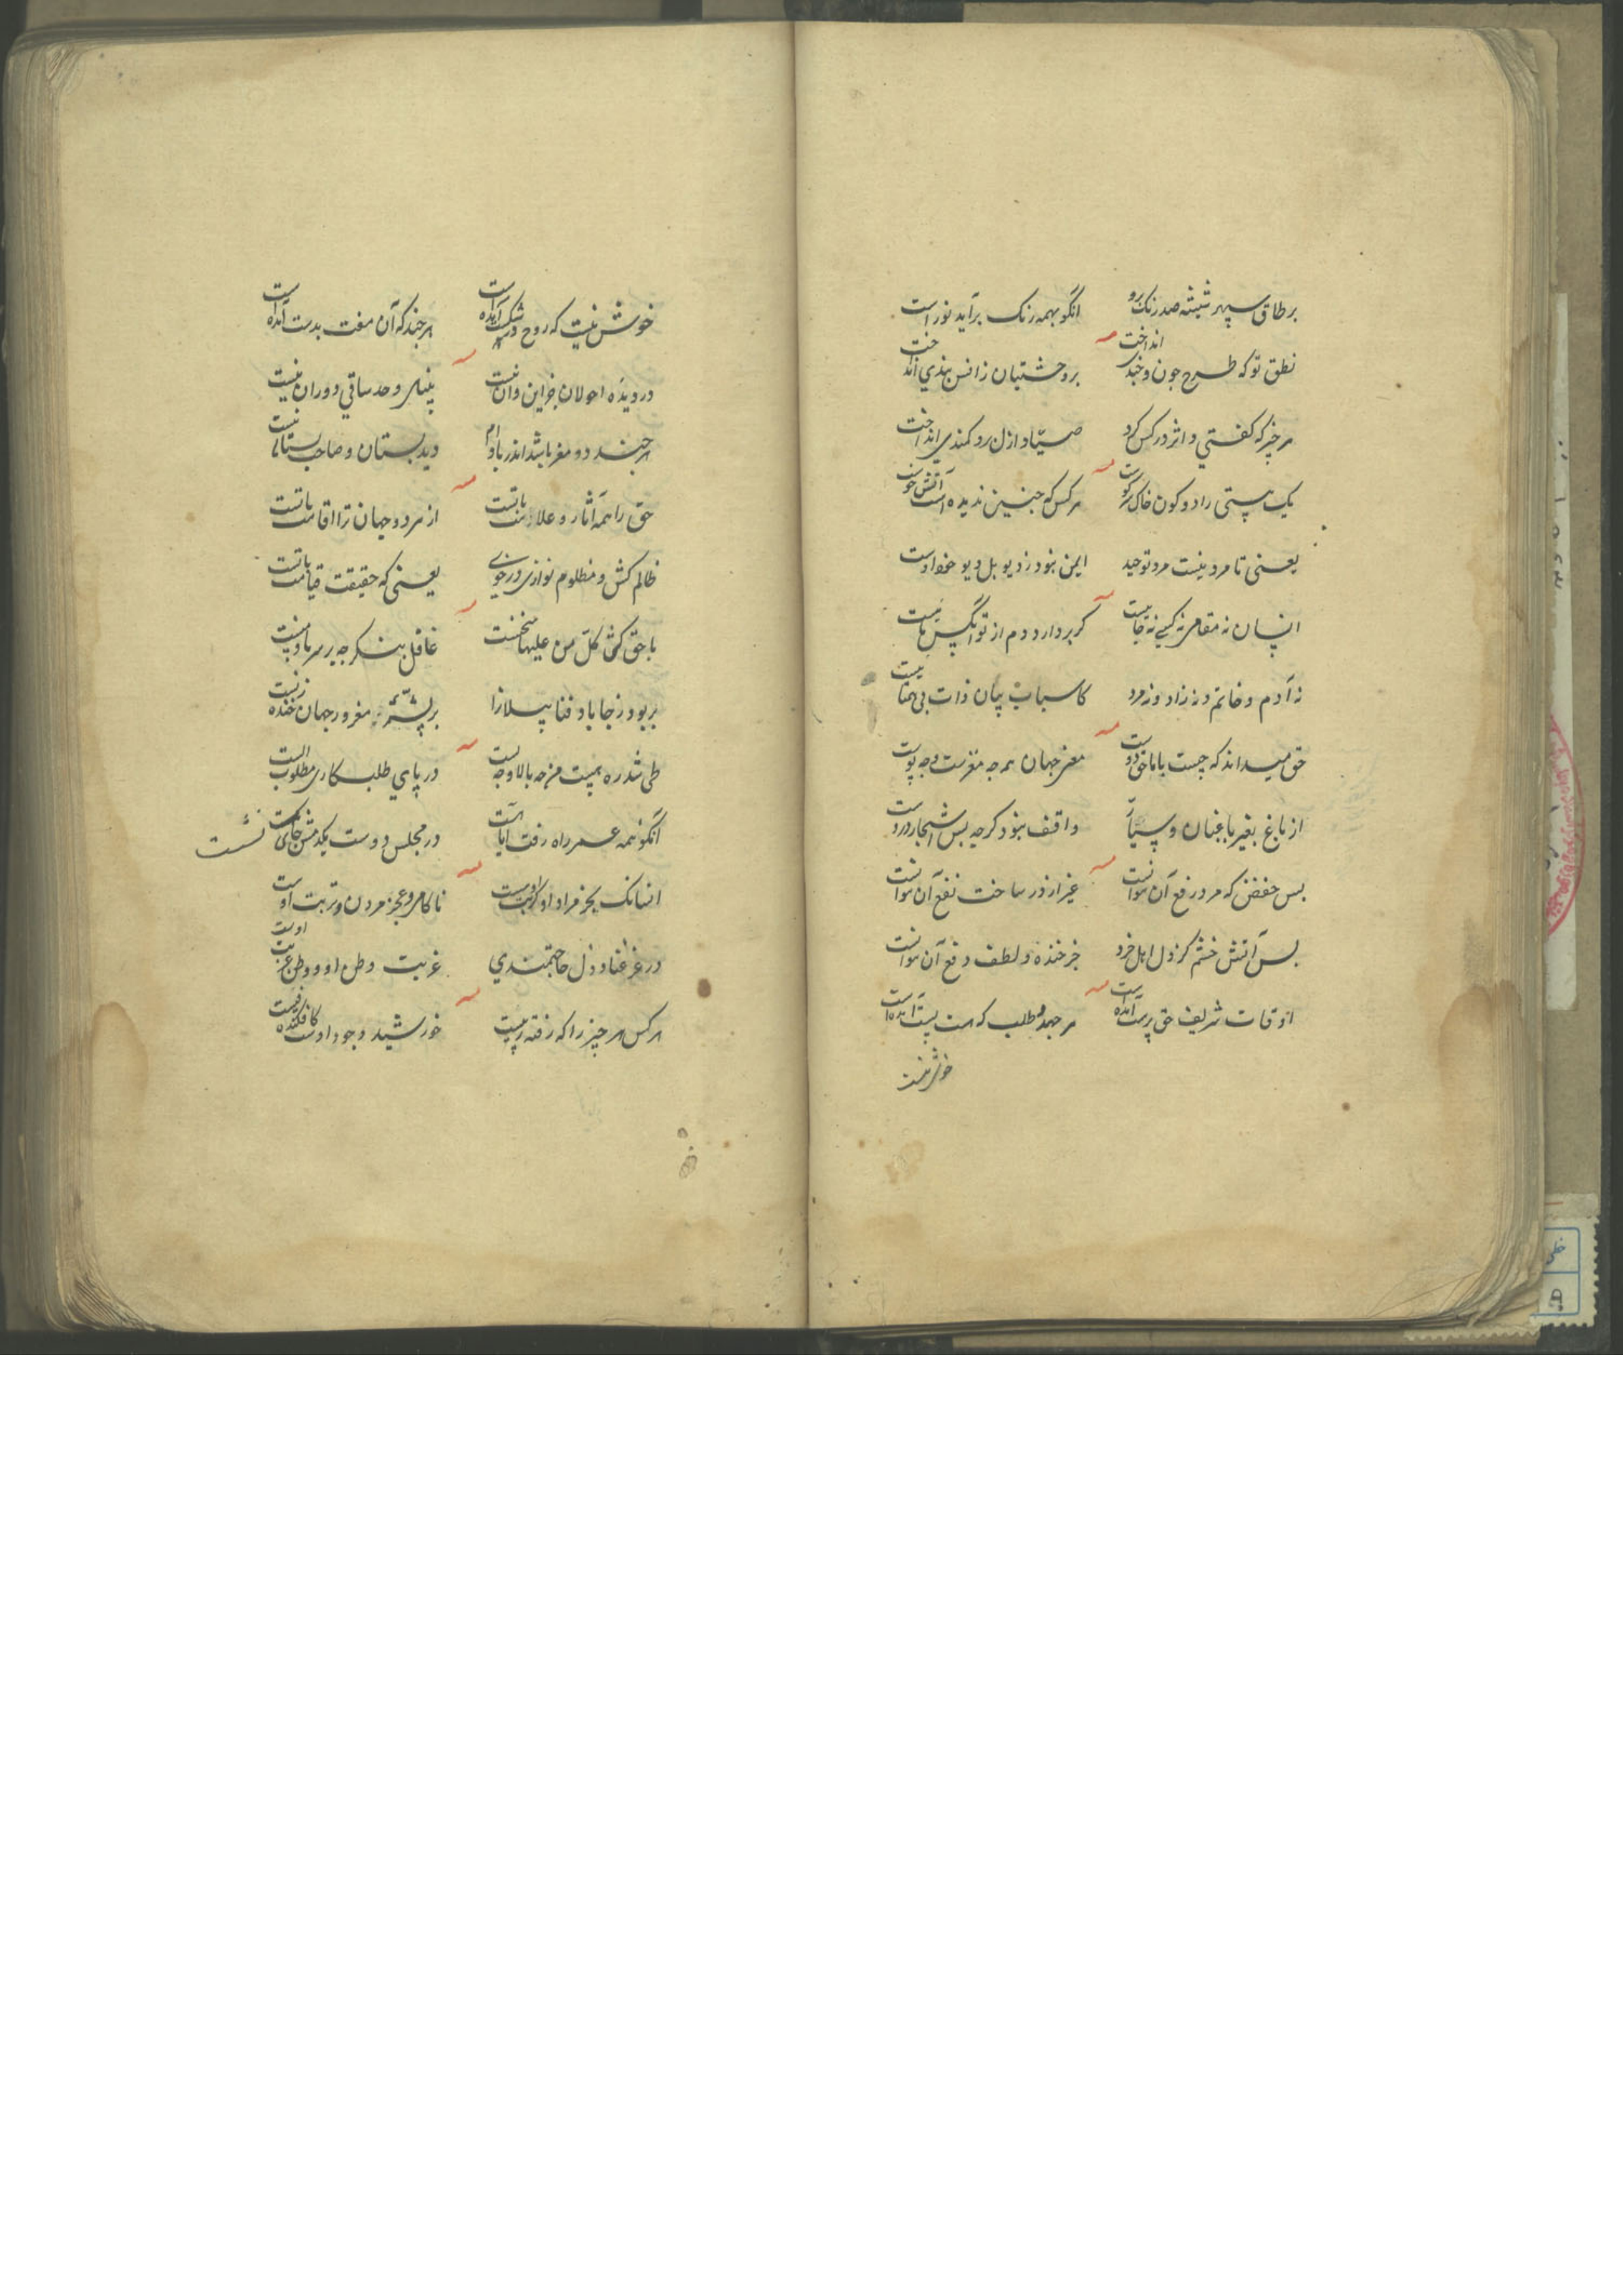 بر طاق سپهر شیشه صد رنگ رو انکو بهمه رنک برآید نور است
نطق تو که طرح چون و چند انداخت بر وحشتیان ز انس بندی انداخت
هر چیز که کفتی و اثر در کس کرد صیّاد ازل رو کمندی انداخت
یک هستی را دو کون خاک سر کوست هر کس که چنین ندیده است آتش خوست
یعنی تا مرد نیست مرد توحید ایمن نبود ز دیو بل دیو خود اوست
انسان نه مقامی نه کسی نه جاییست کر بردارد دم از تو انکس با نیست
نه آدم و خاتم و نه زاد و نه مرد کاسباب بیان ذات بی همتا نیست
حق میداند که چیست با ما حق دوست مغز جهان هر چه مغزست و چه پوست
از باغ بغیر باغبان و سیّار واقف نبود کرچه بس اشجار دروست
بس حفض که مرد رفع آن نتوانست غیر از در ساخت نفع آن نتوانست
بس آتش خشم کز دل اهل خرد جز خنده و لطف دفع آن نتوانست
اوقات شریف حق پرست آمده است هر جهد و طلب که هست پست آمده است
خوش نیست
خوش نیست که روح در شکست آمده است هر چند که آن مفت بدست آمده است
در دیدهٔ احولان جز این و آن نیست بینای وحد ساقی دوران نیست
هر چند دو مغز باشد اندر بادام دید بستان و صاحب بستان نیست
حق را همه آثار و علامت باتست از هر دو جهان ترا اقامت باتست
ظالم کش و مظلوم نوازی در خوی یعنی که حقیقت قیامت باتست
با حق کنی کلّ من علیها سخنست غافل بنکر چه بر سر ما و منست
بر بود ز جا باد فنا پیلانرا بر پشهٔ مغرور جهان خنده زنست
طی شد ره نیست هر چه بالا و چه پست در پای طلبکاری مطلوب الست
انکو همه عمر راه رفت ایا هست در مجلس دوست یکدمش جای نشست
نشست
انسانک بجز مراد او کربت اوست ناکامی و عجز مردن و تربت اوست
در عز غنا و ذل حاجتمندی غربت وطن او و وطن غربت اوست
هر کس هر چیز را که رفته ز پیست خورشید وجود اوست کافکنده فیست